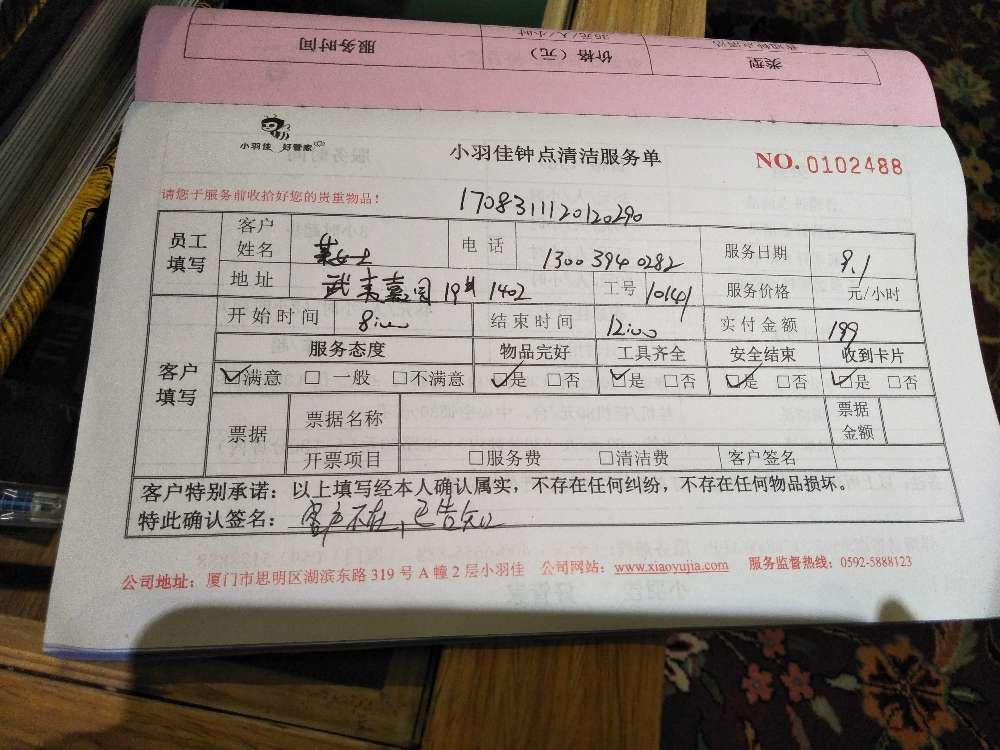 服务时间
价格（元）
类型
35元/人/小时
小羽佳 好管家
小羽佳钟点清洁服务单
NO. 0102488
请您于服务前收拾好您的贵重物品！
1708311120120290
员工填写
客户姓名
女士
电话
13003940282
服务日期
9.1
地址
武夷嘉园19# 1402
工号
10141
服务价格
元/小时
开始时间
8:00
结束时间
12:00
实付金额
199
客户填写
服务态度
物品完好
工具齐全
安全结束
收到卡片
☑满意 □一般 □不满意
☑是 □否
☑是 □否
☑是 □否
☑是 □否
票据
票据名称
票据金额
开票项目
□服务费 □清洁费
客户签名
客户特别承诺：以上填写经本人确认属实，不存在任何纠纷，不存在任何物品损坏。
特此确认签名：客户不在，已告知
公司地址：厦门市思明区湖滨东路 319 号 A 幢 2 层小羽佳 公司网站：www.xiaoyujia.com 服务监督热线：0592-5888123